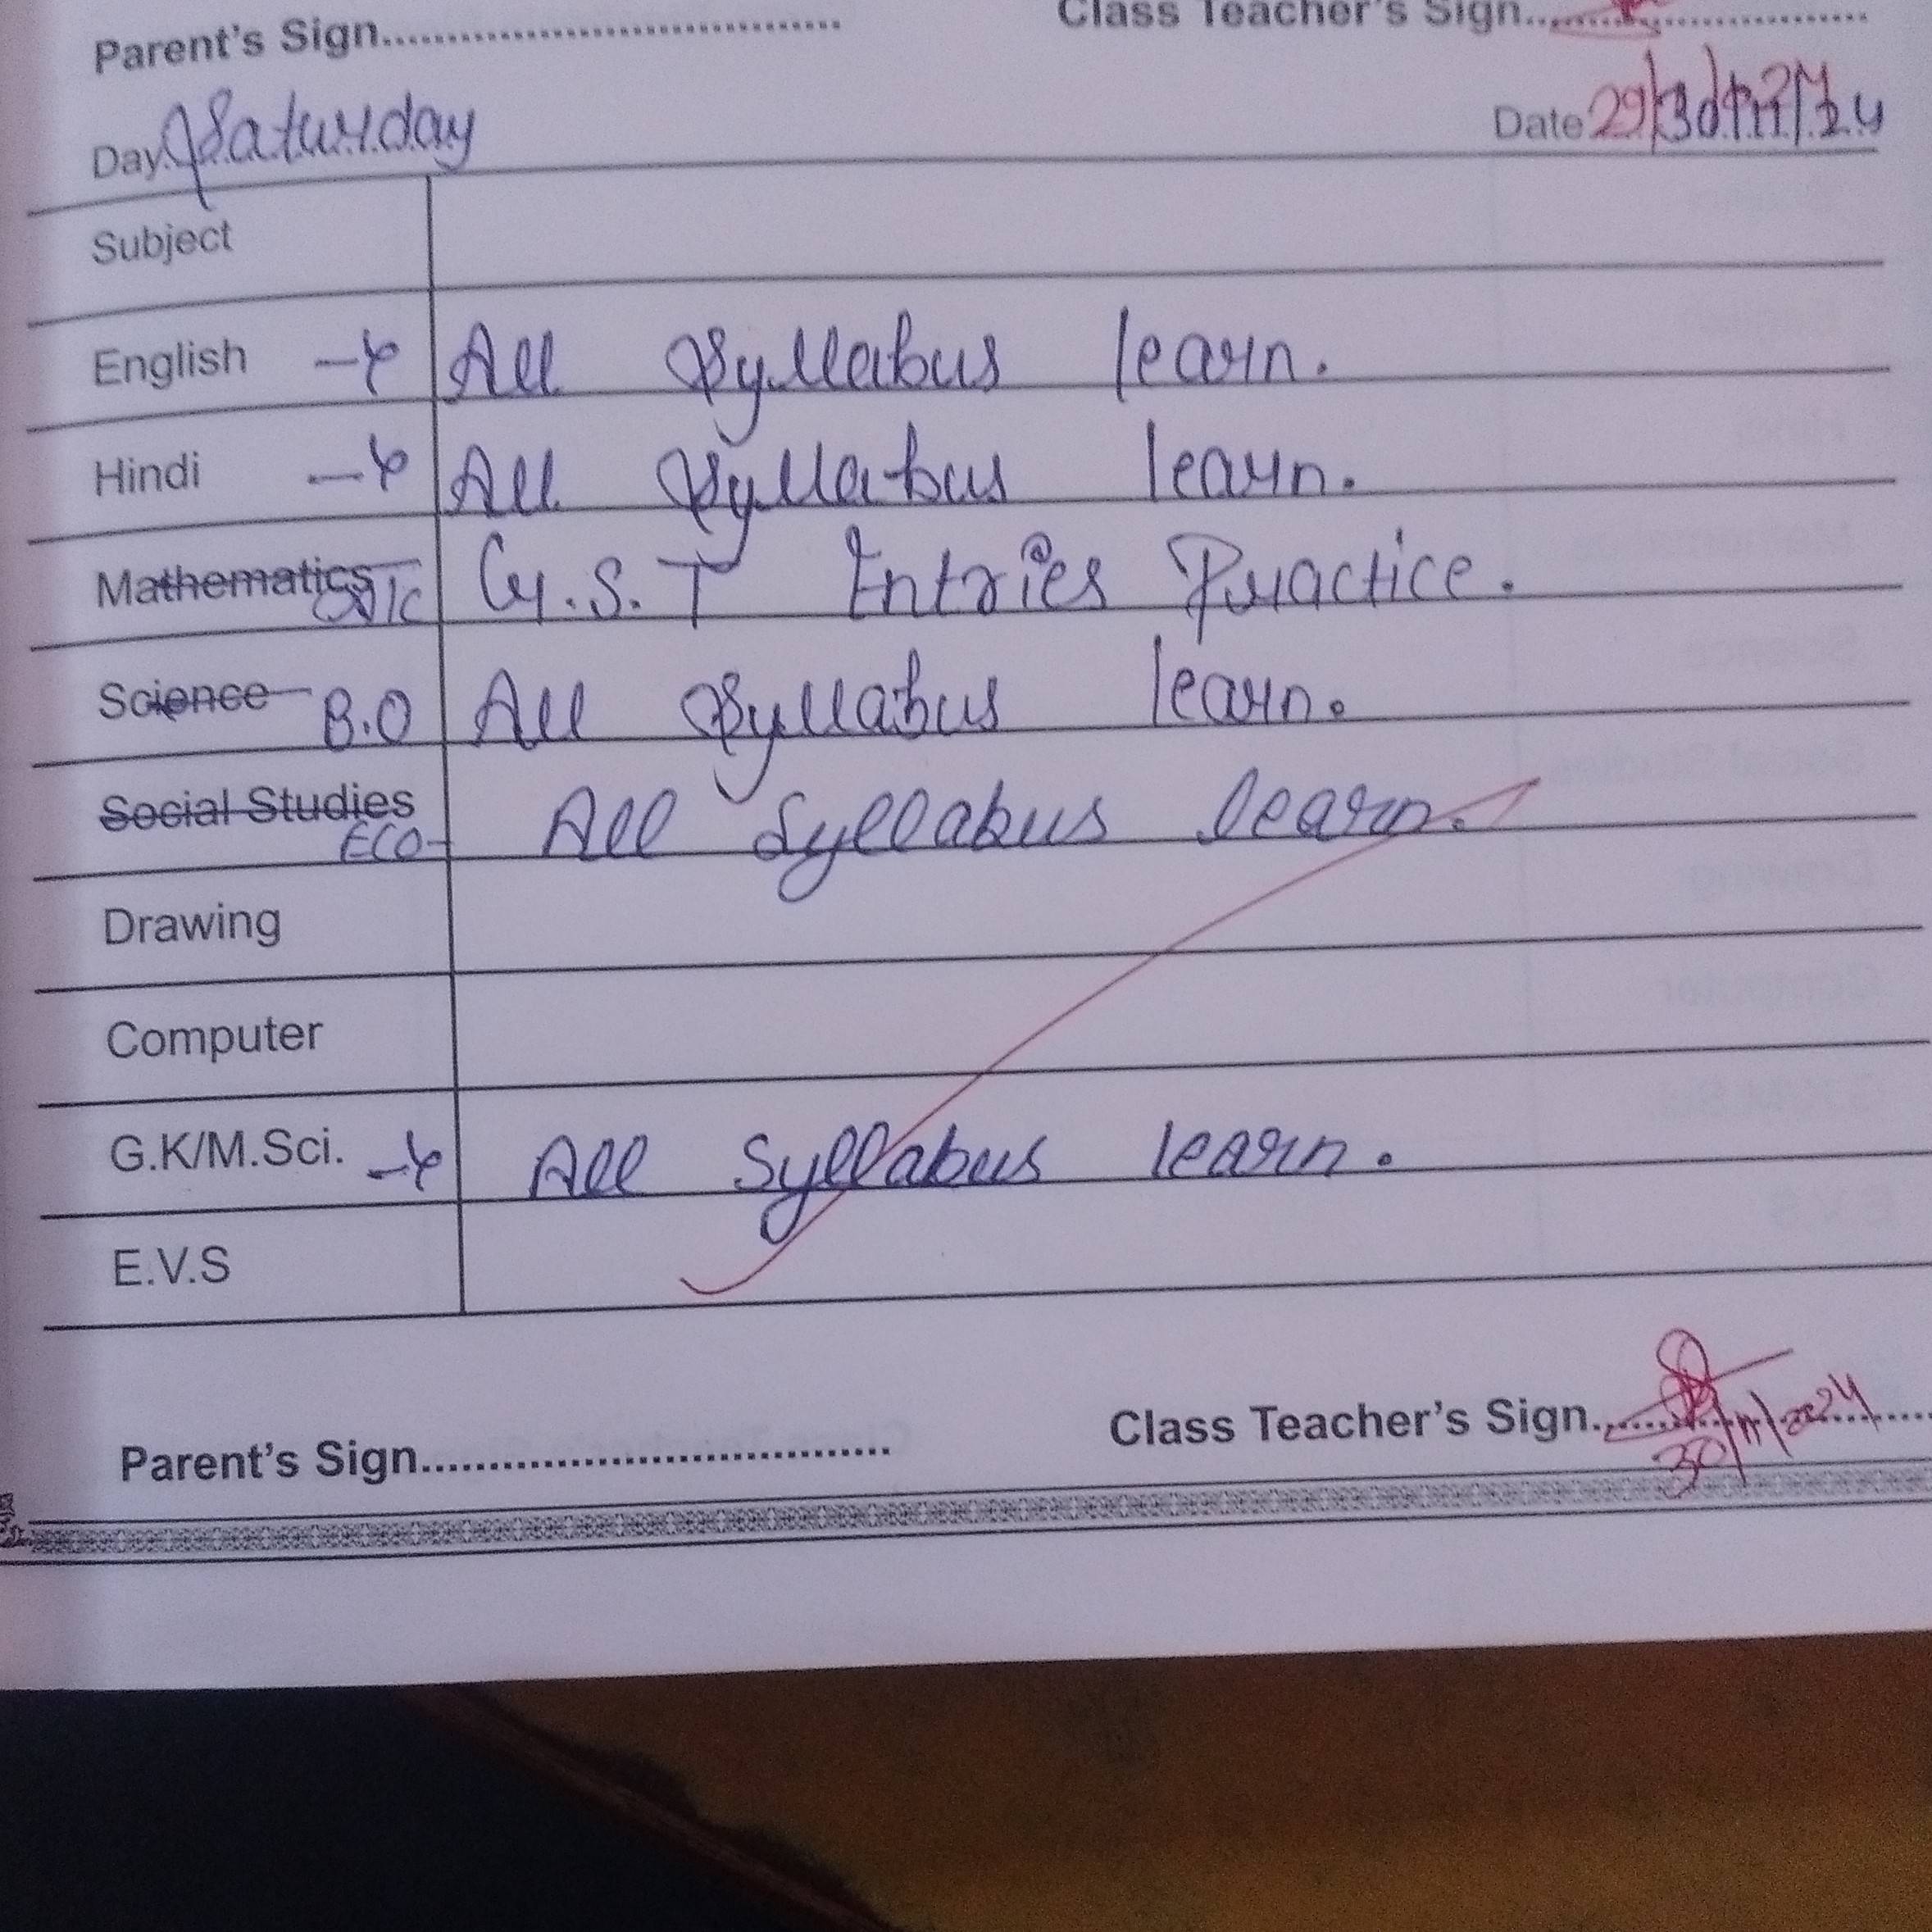 Parent's Sign........................ Class Teacher's Sign........................
Day Saturday Date 30/11/24
Subject
English All Syllabus learn.
Hindi All Syllabus learn.
Mathematics G.S.T Entries Practice.
Science B.O All Syllabus learn.
Social Studies ECO All Syllabus learn.
Drawing
Computer
G.K/M.Sci. All Syllabus learn.
E.V.S
Parent's Sign........................ Class Teacher's Sign........................
30/11/2024